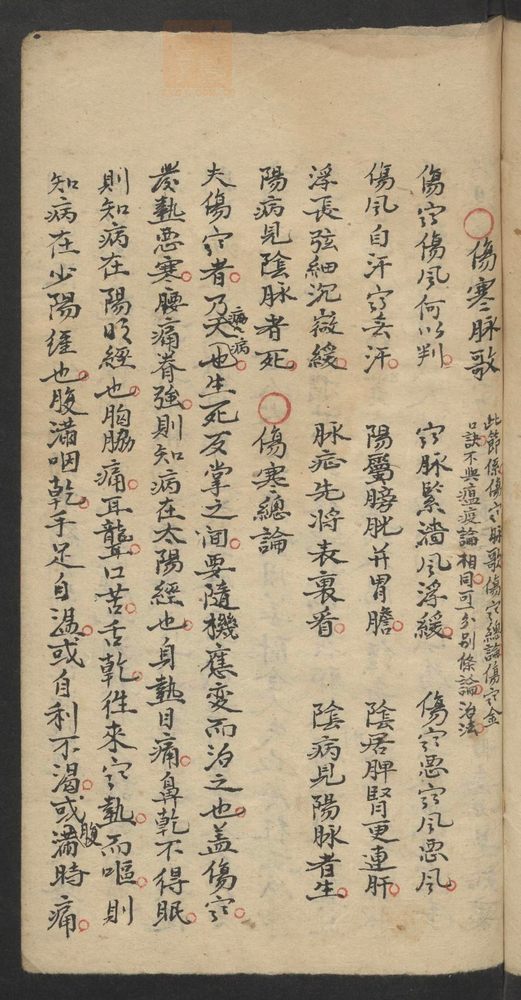 ○傷寒脉歌
此節係傷寒脉歌傷寒總論傷寒金
口訣不與瘟疫論相同可分别條論治法
傷寒傷風何以判。寒脉緊濇風浮緩。傷寒惡寒風惡風。
傷風自汗寒無汗。陽屬膀胱并胃膽。陰居脾腎更連肝。
浮長弦細沉微緩。脉症先將表裏看。陰病見陽脉者生。
陽病見陰脉者死。○傷寒總論
夫傷寒者。乃大病也。病生死反掌之间。要隨機應变而治之也。盖傷寒。
發熱惡寒。腰痛脊強。則知病在太陽經也。身熱目痛。鼻乾不得眠。
則知病在陽明經也。胸脇痛。耳聾口苦。舌乾。徃来寒熱而嘔。則
知病在少陽經也。腹滿咽乾。手足自温。或自利不渴。或腹滿時痛。